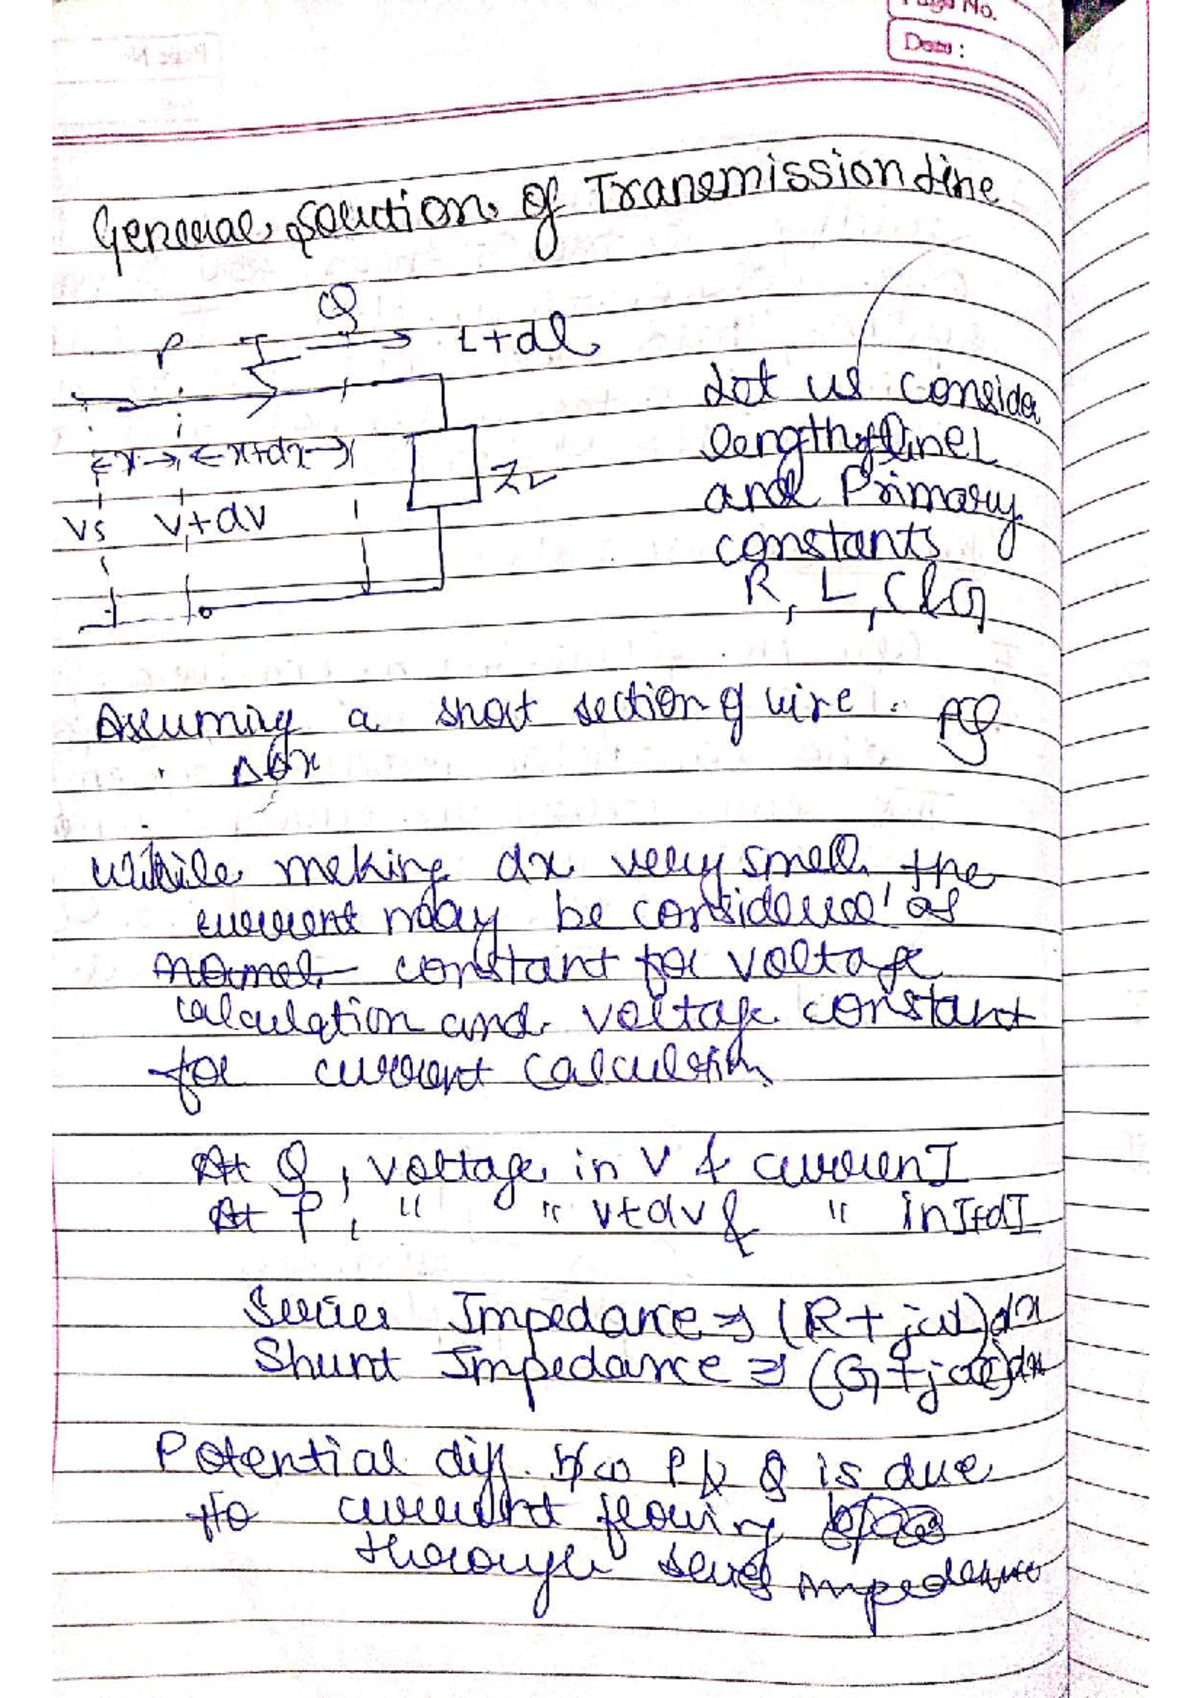 Page No.
Date:
General solution of Transmission Line
Q
P I I+dI
Let us consider
length of line L
←x→ ←x+dx→
ZL
and Primary
Vs V+dV
constants
R, L, C & G
Assuming a short section of wire. PQ
dx
While making dx very small the
current may be considered as
normal constant for voltage
calculation and voltage constant
for current calculation
At Q, voltage in V & current I
At P, " " V+dV & " in I+dI
Series Impedance ⇒ (R+jωL)dx
Shunt Impedance ⇒ (G+jωC)dx
Potential diff. b/w P & Q is due
to current flowing
through series impedance